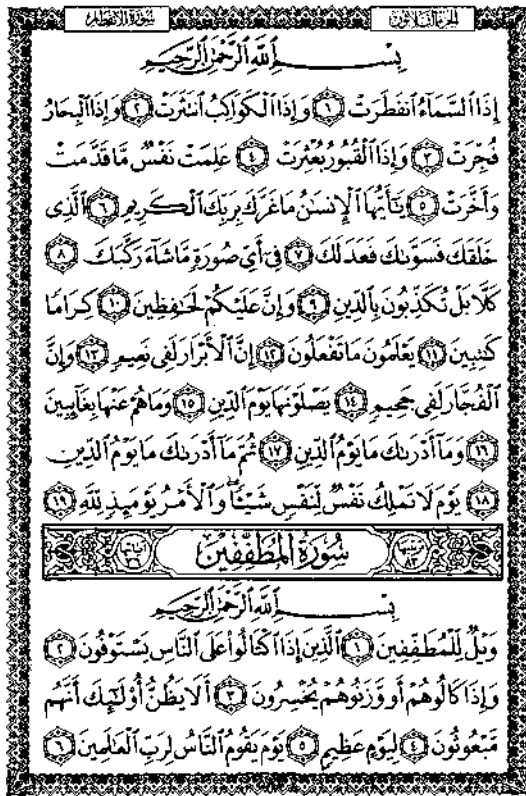 سُورَةُ الانفِطَارِ الجُزْءُ الثَّلَاثُونَ
بِسْمِ ٱللَّهِ ٱلرَّحْمَٰنِ ٱلرَّحِيمِ
إِذَا ٱلسَّمَآءُ ٱنفَطَرَتْ ١ وَإِذَا ٱلْكَوَاكِبُ ٱنتَثَرَتْ ٢ وَإِذَا ٱلْبِحَارُ
فُجِّرَتْ ٣ وَإِذَا ٱلْقُبُورُ بُعْثِرَتْ ٤ عَلِمَتْ نَفْسٌ مَّا قَدَّمَتْ
وَأَخَّرَتْ ٥ يَٰٓأَيُّهَا ٱلْإِنسَٰنُ مَا غَرَّكَ بِرَبِّكَ ٱلْكَرِيمِ ٦ ٱلَّذِى
خَلَقَكَ فَسَوَّىٰكَ فَعَدَلَكَ ٧ فِىٓ أَىِّ صُورَةٍ مَّا شَآءَ رَكَّبَكَ ٨
كَلَّا بَلْ تُكَذِّبُونَ بِٱلدِّينِ ٩ وَإِنَّ عَلَيْكُمْ لَحَٰفِظِينَ ١٠ كِرَامًا
كَٰتِبِينَ ١١ يَعْلَمُونَ مَا تَفْعَلُونَ ١٢ إِنَّ ٱلْأَبْرَارَ لَفِى نَعِيمٍ ١٣ وَإِنَّ
ٱلْفُجَّارَ لَفِى جَحِيمٍ ١٤ يَصْلَوْنَهَا يَوْمَ ٱلدِّينِ ١٥ وَمَا هُمْ عَنْهَا بِغَآئِبِينَ
١٦ وَمَآ أَدْرَىٰكَ مَا يَوْمُ ٱلدِّينِ ١٧ ثُمَّ مَآ أَدْرَىٰكَ مَا يَوْمُ ٱلدِّينِ
١٨ يَوْمَ لَا تَمْلِكُ نَفْسٌ لِّنَفْسٍ شَيْـًٔا وَٱلْأَمْرُ يَوْمَئِذٍ لِّلَّهِ ١٩
ترتيبها ٨٣ سُورَةُ المُطَفِّفِينَ آياتها ٣٦
بِسْمِ ٱللَّهِ ٱلرَّحْمَٰنِ ٱلرَّحِيمِ
وَيْلٌ لِّلْمُطَفِّفِينَ ١ ٱلَّذِينَ إِذَا ٱكْتَالُوا۟ عَلَى ٱلنَّاسِ يَسْتَوْفُونَ ٢
وَإِذَا كَالُوهُمْ أَو وَّزَنُوهُمْ يُخْسِرُونَ ٣ أَلَا يَظُنُّ أُو۟لَٰٓئِكَ أَنَّهُم
مَّبْعُوثُونَ ٤ لِيَوْمٍ عَظِيمٍ ٥ يَوْمَ يَقُومُ ٱلنَّاسُ لِرَبِّ ٱلْعَٰلَمِينَ ٦